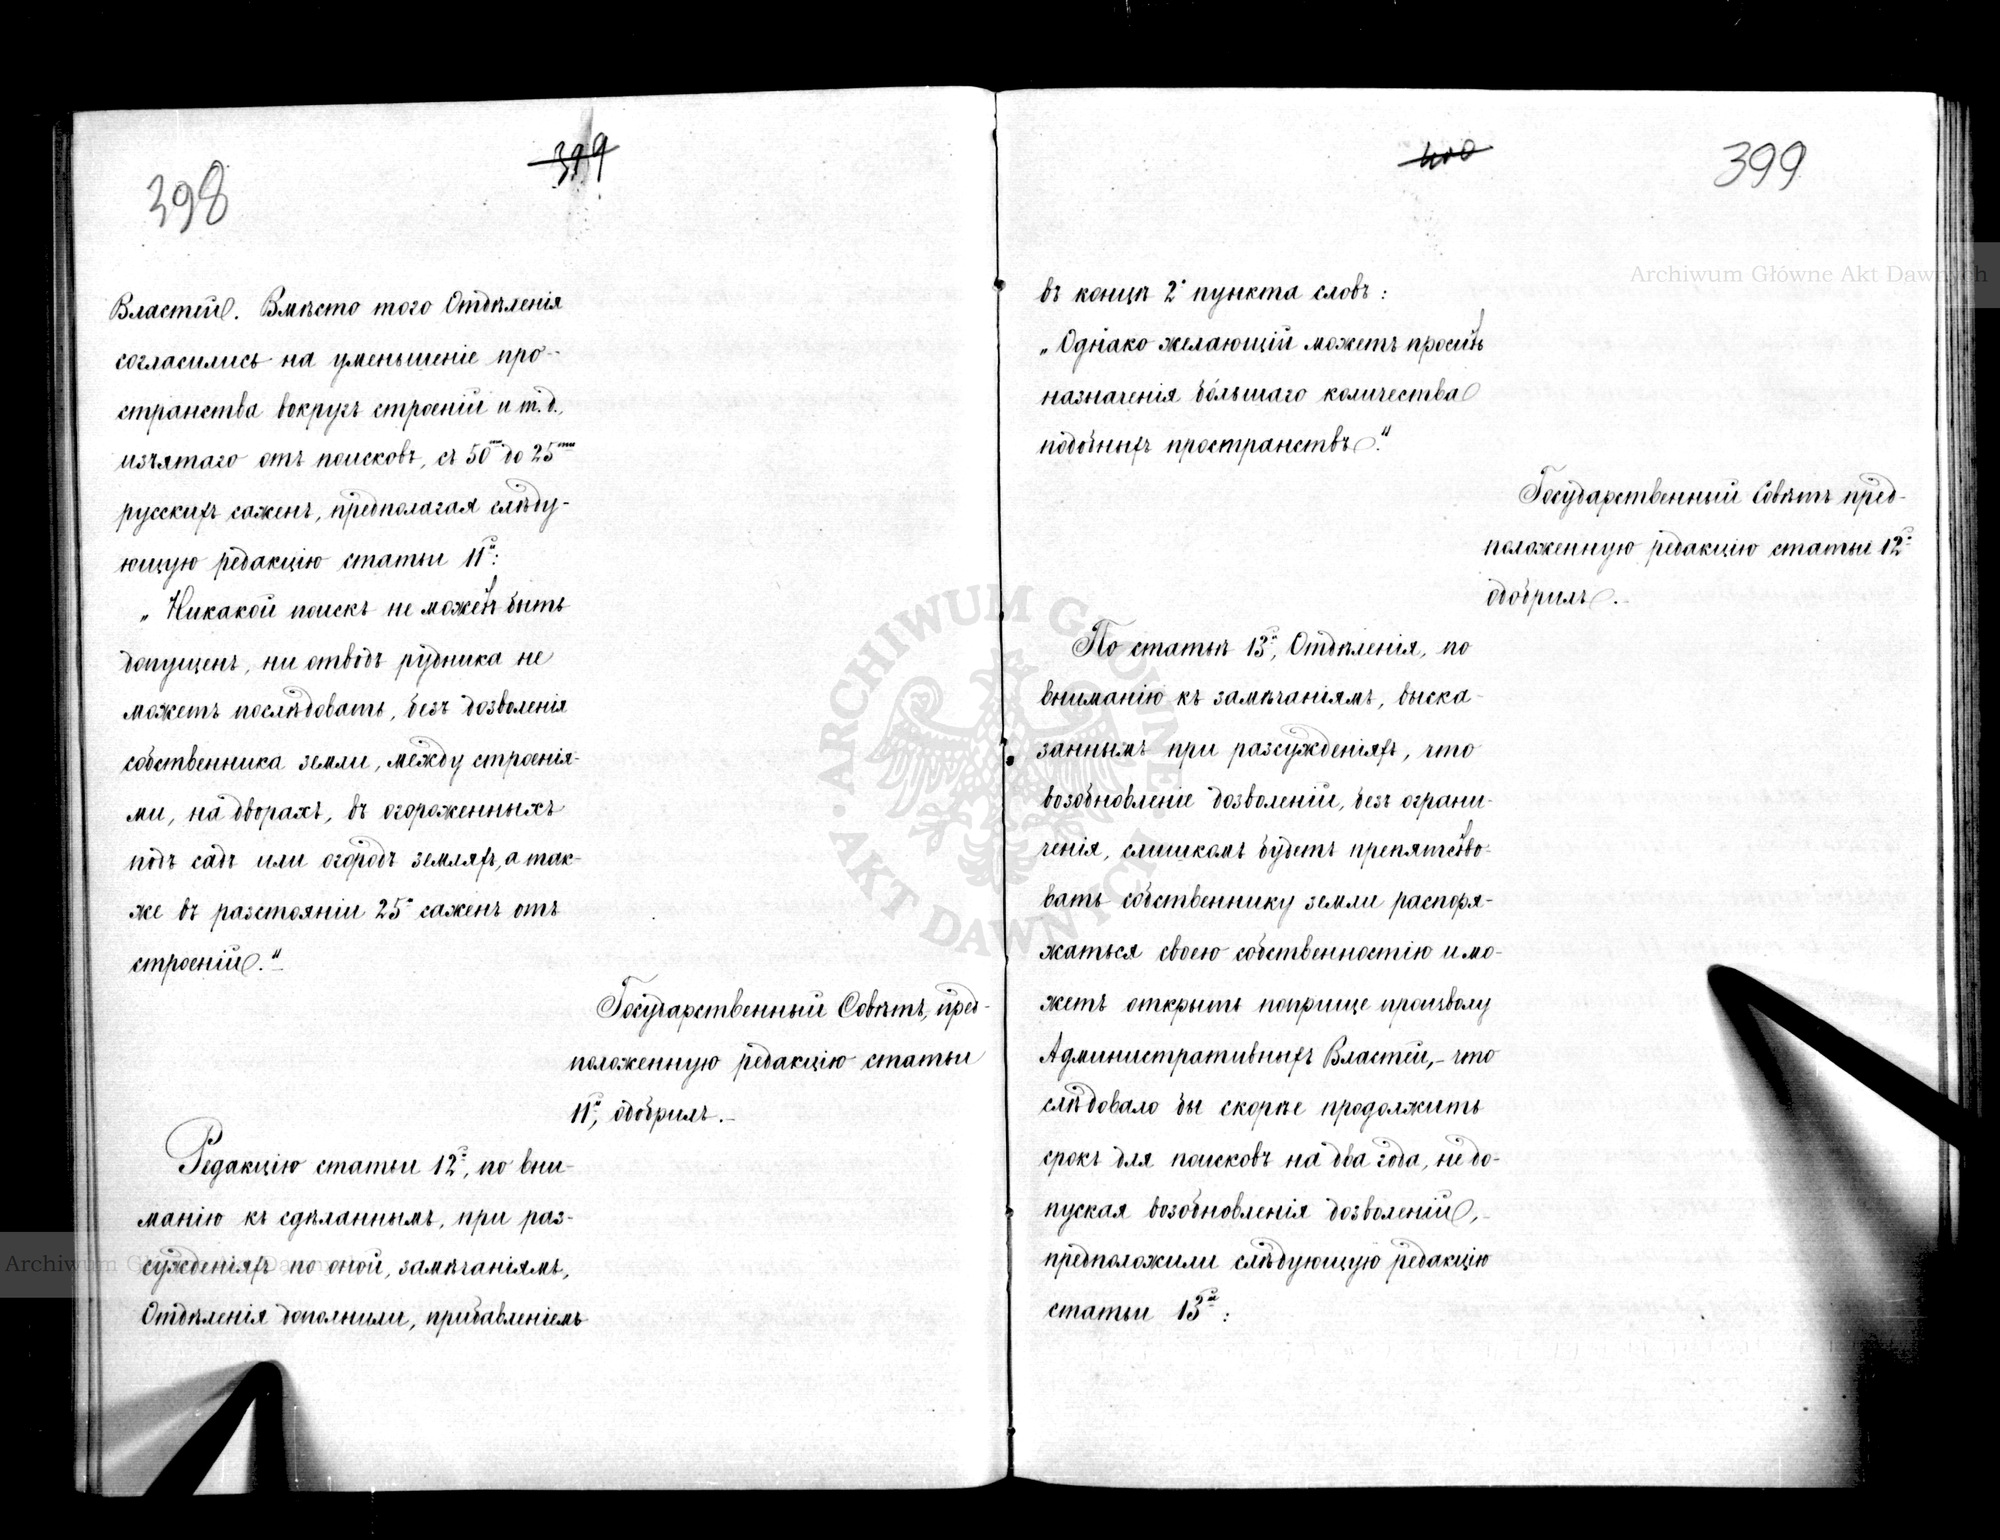 398
399
Властей. Вмѣсто того Отдѣленія
согласились на уменьшеніе про-
странства вокругъ строеній и т.д.,
изъятаго отъ поисковъ, съ 50ти до 25ти
русскихъ саженъ, предполагая слѣду-
ющую редакцію статьи 11й:
„Никакой поискъ не можетъ быть
допущенъ, ни отводъ рудника не
можетъ послѣдовать, безъ дозволенія
собственника земли, между строенія-
ми, на дворахъ, въ огороженныхъ
подъ садъ или огородъ земляхъ, а так-
же въ разстояніи 25и саженъ отъ
строеній."
Государственный Совѣтъ, пред-
положенную редакцію статьи
11й, одобрилъ.–
Редакцію статьи 12й, по вни-
манію къ сдѣланнымъ, при раз-
сужденіяхъ по оной, замѣчаніямъ,
Отдѣленія дополнили, прибавленіемъ
400
399
въ концѣ 2о пункта словъ:
„Однако желающій можетъ просить
назначенія бóльшаго количества
подобныхъ пространствъ."
Государственный Совѣтъ пред-
положенную редакцію статьи 12й
одобрилъ.–
По статьѣ 13й, Отдѣленія, по
вниманію къ замѣчаніямъ, выска-
заннымъ при разсужденіяхъ, что
возобновленіе дозволеній, безъ ограни-
ченія, слишкомъ будетъ препятство-
вать собственнику земли распоря-
жаться своею собственностію и мо-
жетъ открыть поприще произволу
Административныхъ Властей,– что
слѣдовало бы скорѣе продолжить
срокъ для поисковъ на два года, не до-
пуская возобновленія дозволеній,–
предположили слѣдующую редакцію
статьи 13й:
Archiwum Główne Akt Dawnych
Archiwum Główne Akt Dawnych
ARCHIWUM GŁÓWNE AKT DAWNYCH